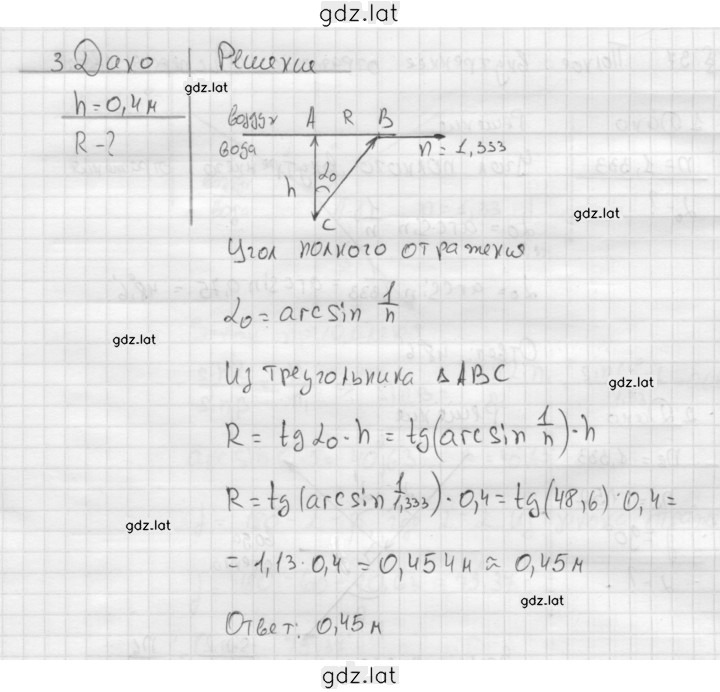 gdz.lat
3 Дано Решение
gdz.lat
h = 0,4 м
R - ?
воздух A R B
вода n = 1,333
h α₀
C
gdz.lat
Угол полного отражения
α₀ = arcsin 1/n
gdz.lat
Из треугольника ΔABC
gdz.lat
R = tg α₀ · h = tg(arcsin 1/n) · h
R = tg(arcsin 1/1,333) · 0,4 = tg(48,6) · 0,4 =
gdz.lat
= 1,13 · 0,4 = 0,454 м ≈ 0,45 м
gdz.lat
Ответ: 0,45 м
gdz.lat